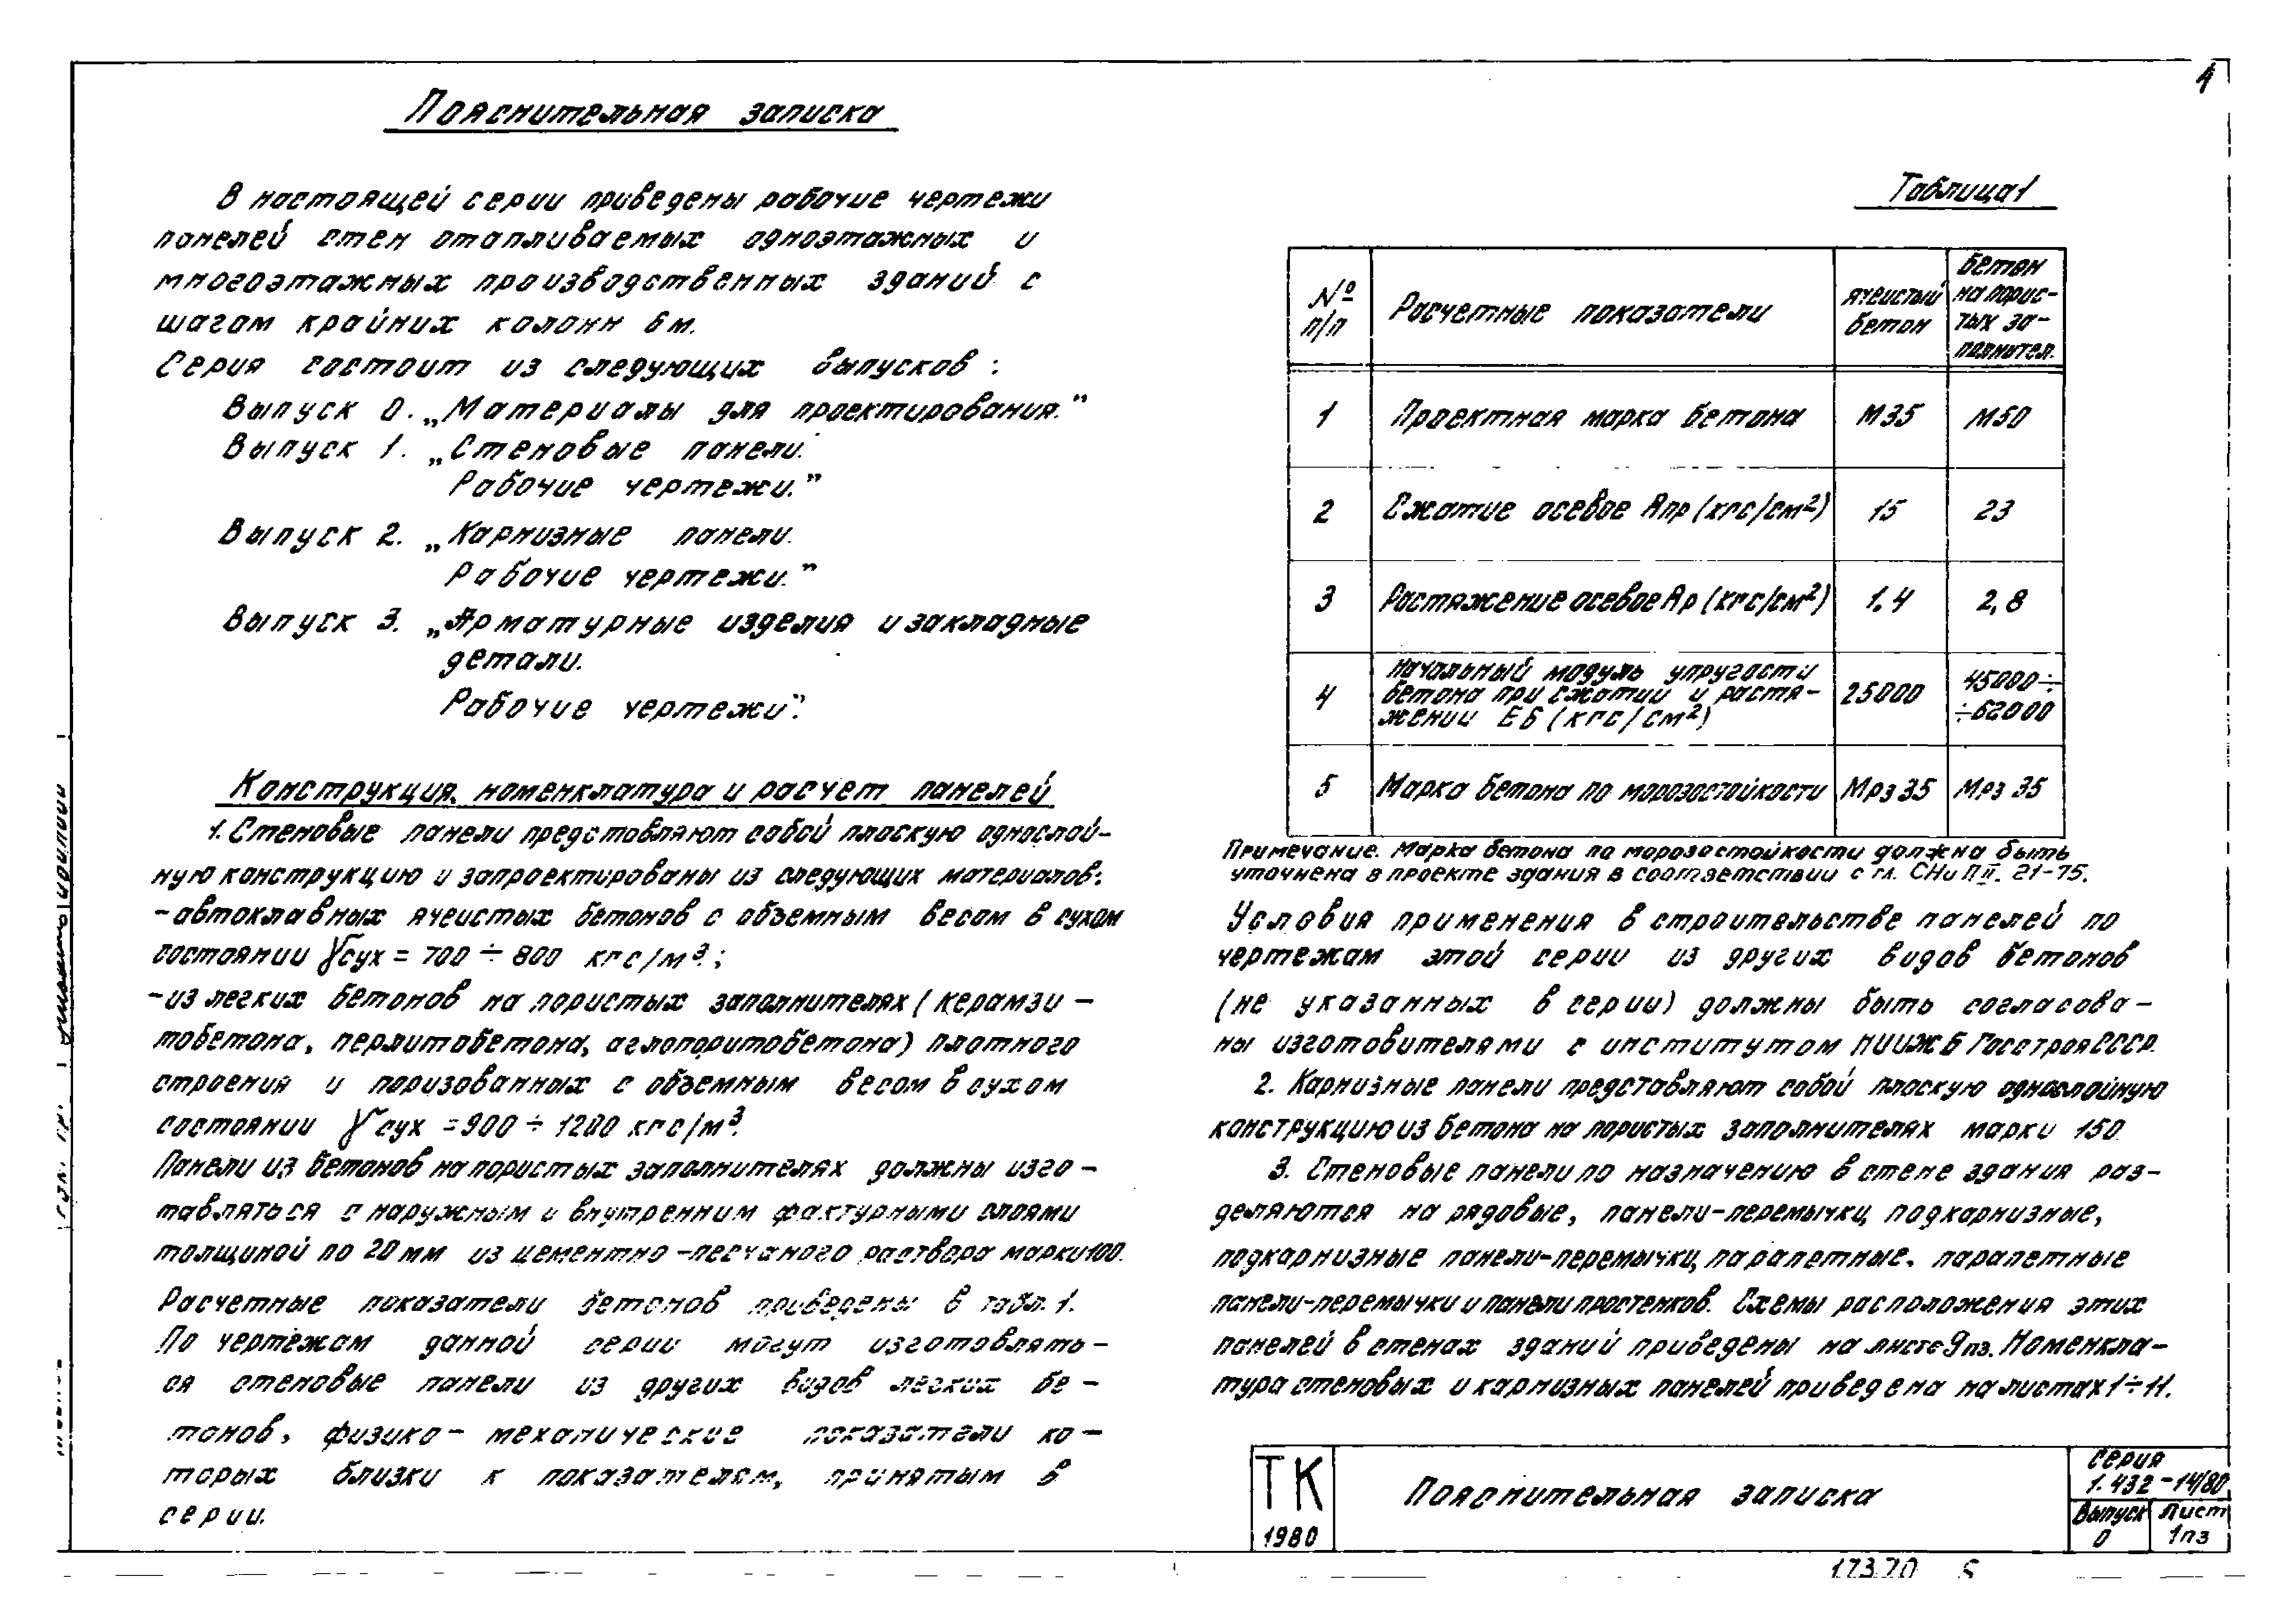 Пояснительная записка
В настоящей серии приведены рабочие чертежи
панелей стен отапливаемых одноэтажных и
многоэтажных производственных зданий с
шагом крайних колонн 6м.
Серия состоит из следующих выпусков:
Выпуск 0. „Материалы для проектирования."
Выпуск 1. „Стеновые панели.
Рабочие чертежи."
Выпуск 2. „Карнизные панели.
Рабочие чертежи."
Выпуск 3. „Арматурные изделия и закладные
детали.
Рабочие чертежи".
Конструкция, номенклатура и расчет панелей
1. Стеновые панели представляют собой плоскую однослой-
ную конструкцию и запроектированы из следующих материалов:
- автоклавных ячеистых бетонов с объемным весом в сухом
состоянии γсух = 700 ÷ 800 кгс/м³;
- из легких бетонов на пористых заполнителях (керамзи-
тобетона, перлитобетона, аглопоритобетона) плотного
строения и поризованных с объемным весом в сухом
состоянии γсух = 900 ÷ 1200 кгс/м³.
Панели из бетонов на пористых заполнителях должны изго-
тавляться с наружным и внутренним фактурными слоями
толщиной по 20 мм из цементно-песчаного раствора марки 100.
Расчетные показатели бетонов приведены в табл. 1.
По чертежам данной серии могут изготовлять-
ся стеновые панели из других видов легких бе-
тонов, физико-механические показатели ко-
торых близки к показателям, принятым в
серии.
4
Таблица 1
№ п/п | Расчетные показатели | ячеистый бетон | бетон на порис-тых за-полнител.
1 | Проектная марка бетона | М35 | М50
2 | Сжатие осевое Rпр (кгс/см²) | 15 | 23
3 | Растяжение осевое Rр (кгс/см²) | 1,4 | 2,8
4 | Начальный модуль упругости бетона при сжатии и растя-жении Еб (кгс/см²) | 25000 | 45000÷ ÷62000
5 | Марка бетона по морозостойкости | Мрз 35 | Мрз 35
Примечание. Марка бетона по морозостойкости должна быть
уточнена в проекте здания в соответствии с гл. СНиП II. 21-75.
Условия применения в строительстве панелей по
чертежам этой серии из других видов бетонов
(не указанных в серии) должны быть согласова-
ны изготовителями с институтом НИИЖБ Госстроя СССР.
2. Карнизные панели представляют собой плоскую однослойную
конструкцию из бетона на пористых заполнителях марки 150.
3. Стеновые панели по назначению в стене здания раз-
деляются на рядовые, панели-перемычки, подкарнизные,
подкарнизные панели-перемычки, парапетные, парапетные
панели-перемычки и панели простенков. Схемы расположения этих
панелей в стенах зданий приведены на листе 9пз. Номенкла-
тура стеновых и карнизных панелей приведена на листах 1÷11.
ТК
1980
Пояснительная записка
Серия
1.432-14/80
Выпуск
0
Лист
1пз
17370 5